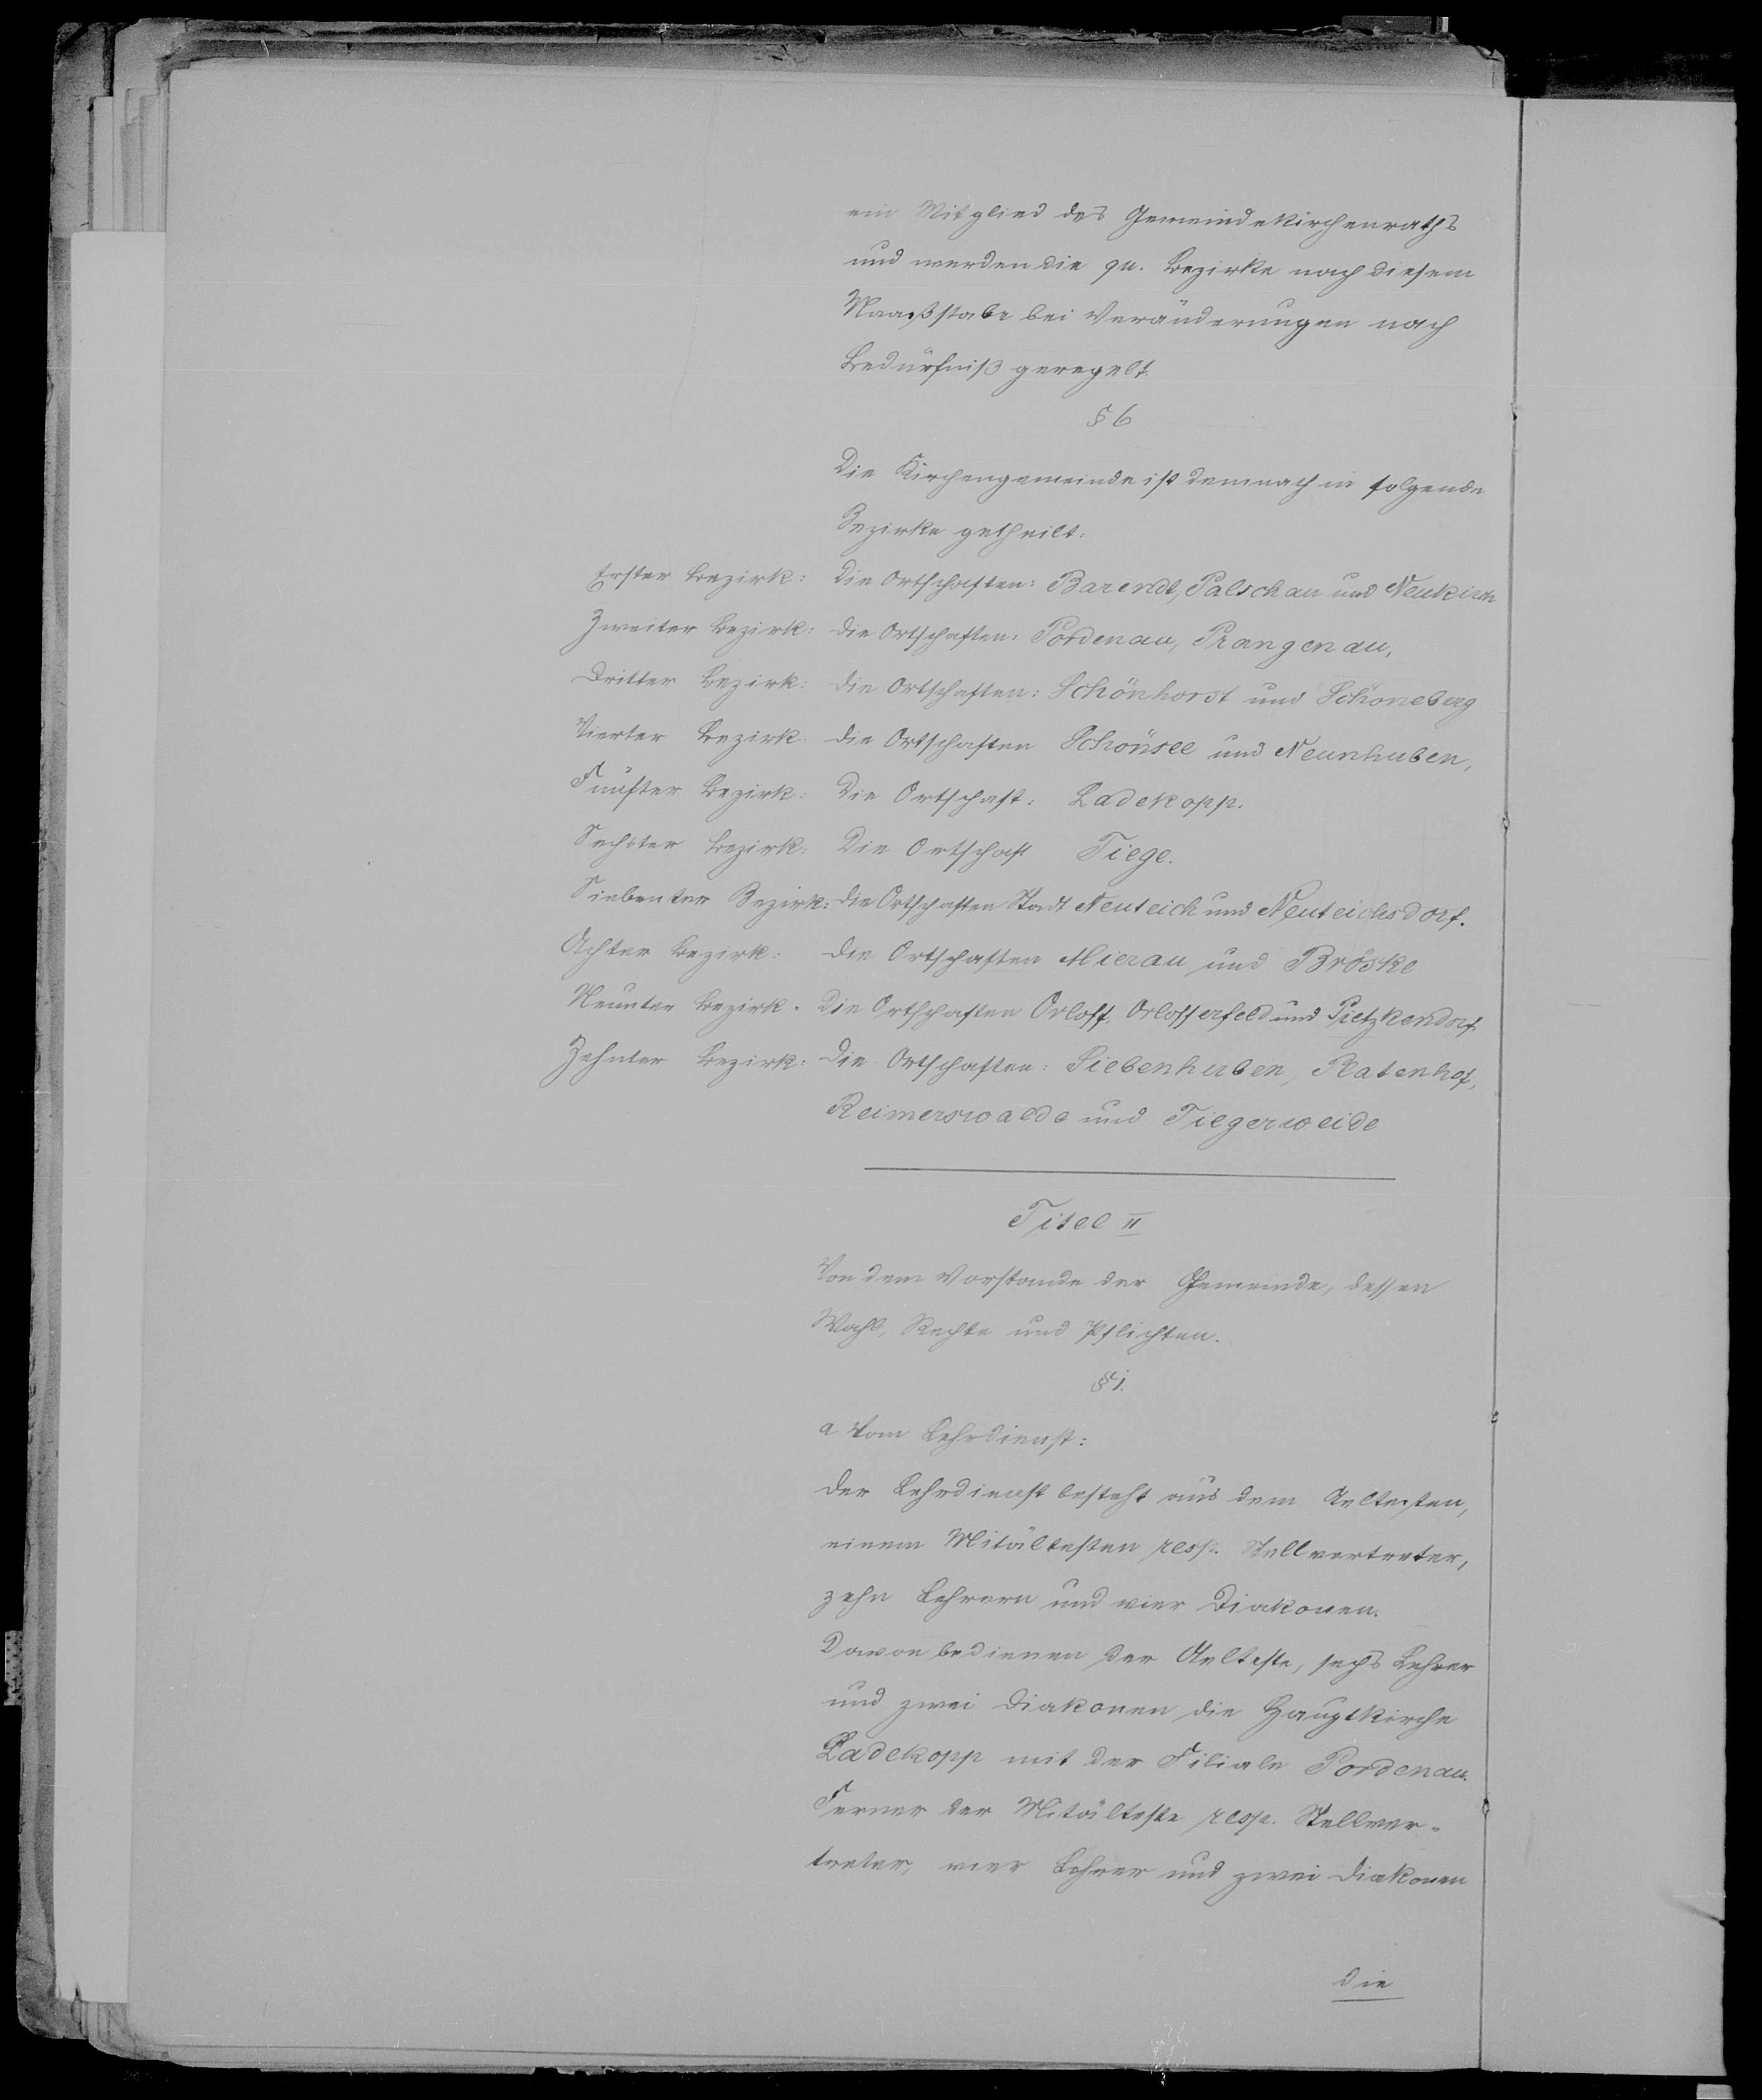 ein Mitglied des Gemeindekirchenraths
und werden die qu. Bezirke nach diesem
Maaßstabe bei Veränderungen nach
Bedürfniß geregelt.
§ 6
Die Kirchengemeinde ist demnach in folgende
Bezirke getheilt:
Erster Bezirk: Die Ortschaften: Barendt, Palschau und Neukirch
Zweiter Bezirk: die Ortschaften: Pordenau, Prangenau,
Dritter Bezirk: die Ortschaften: Schönhorst und Schöneberg
Vierter Bezirk. die Ortschaften Schönsee und Neunhuben,
Fünfter Bezirk: Die Ortschaft: Ladekopp.
Sechster Bezirk: Die Ortschaft Tiege.
Siebenter Bezirk: die Ortschaften Stadt Neuteich und Neuteichsdorf.
Achter Bezirk: die Ortschaften Mierau und Bröske
Neunter Bezirk. Die Ortschaften Orloff, Orlofferfeld und Pietzkendorf
Zehnter Bezirk: Die Ortschaften: Siebenhuben, Platenhof,
Reimerswalde und Tiegerweide
Titel II
Von dem Vorstande der Gemeinde, dessen
Wahl, Rechte und Pflichten.
§ 1.
a Vom Lehrdienst:
Der Lehrdienst besteht aus dem Aeltesten,
einem Mitältesten resp. Stellvertreter,
zehn Lehrern und vier Diakonen.
Davon bedienen der Aelteste, sechs Lehrer
und zwei Diakonen die Hauptkirche
Ladekopp mit der Filiale Pordenau.
Ferner der Mitälteste resp. Stellver-
treter, vier Lehrer und zwei Diakonen
die